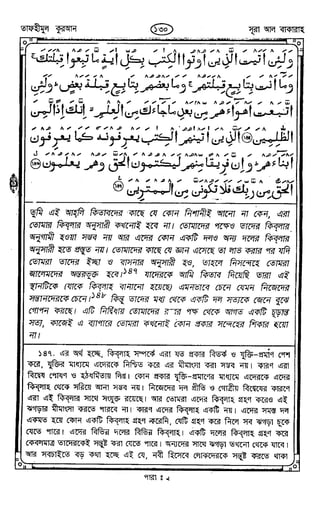 তাফহীমুল কুরআন
১৩০
সূরা আল বাকারাহ
وَلَئِنْ أَتَيْتَ الَّذِينَ أُوتُوا الْكِتٰبَ بِكُلِّ اٰيَةٍ مَّا تَبِعُوا قِبْلَتَكَ ۚ
وَمَا أَنْتَ بِتَابِعٍ قِبْلَتَهُمْ ۚ وَمَا بَعْضُهُمْ بِتَابِعٍ قِبْلَةَ بَعْضٍ ۚ وَلَئِنِ
اتَّبَعْتَ أَهْوَاءَهُمْ مِّنْ بَعْدِ مَا جَاءَكَ مِنَ الْعِلْمِ ۙ إِنَّكَ إِذًا لَّمِنَ
الظّٰلِمِينَ ۝ الَّذِينَ اٰتَيْنٰهُمُ الْكِتٰبَ يَعْرِفُونَهُ كَمَا يَعْرِفُونَ
أَبْنَاءَهُمْ ۚ وَإِنَّ فَرِيقًا مِّنْهُمْ لَيَكْتُمُونَ الْحَقَّ وَهُمْ يَعْلَمُونَ ۝
الْحَقُّ مِنْ رَّبِّكَ فَلَا تَكُونَنَّ مِنَ الْمُمْتَرِينَ ۝
তুমি এই আহ্‌লি কিতাবদের কাছে যে কোন নিশানীই আনো না কেন, এরা
তোমার কিব্‌লার অনুসারী কখনোই হবে না। তোমাদের পক্ষেও তাদের কিব্‌লার
অনুগামী হওয়া সম্ভব নয় আর এদের কোন একটি দলও অন্য দলের কিব্‌লার
অনুসারী হতে প্রস্তুত নয়। তোমাদের কাছে যে জ্ঞান এসেছে তা লাভ করার পর যদি
তোমরা তাদের ইচ্ছা ও বাসনার অনুসারী হও, তাহলে নিসন্দেহে তোমরা
জালেমদের অন্তরভুক্ত হবে।১৪৭ যাদেরকে আমি কিতাব দিয়েছি তারা এই
স্থানটিকে (যাকে কিব্‌লাহ বানানো হয়েছে) এমনভাবে চেনে যেমন নিজেদের
সন্তানদেরকে চেনে।১৪৮ কিন্তু তাদের মধ্য থেকে একটি দল সত্যকে জেনে বুঝে
গোপন করছে। এটি নির্দ্বিধায় তোমাদের রবের পক্ষ থেকে আগত একটি চূড়ান্ত
সত্য, কাজেই এ ব্যাপারে তোমরা কখনোই কোন প্রকার সন্দেহের শিকার হয়ো
না।
১৪৭. এর অর্থ হচ্ছে, কিব্‌লাহ সম্পর্কে এরা যত প্রকার বিতর্ক ও যুক্তি-প্রমাণ পেশ
করে, যুক্তির মাধ্যমে এদেরকে নিশ্চিত করে এর মীমাংসা করা সম্ভব নয়। কারণ এরা
বিদ্বেষ পোষণ ও হঠধর্মিতায় লিপ্ত। কোন প্রকার যুক্তি-প্রমাণের মাধ্যমে এদেরকে এদের
কিব্‌লাহ থেকে সরিয়ে আনা সম্ভব নয়। নিজেদের দল প্রীতি ও গোত্রীয় বিদ্বেষের কারণে
এরা এই কিব্‌লার সাথে সংযুক্ত রয়েছে। আর তোমরা এদের কিব্‌লাহ গ্রহণ করেও এই
ঝগড়ার মীমাংসা করতে পারবে না। কারণ এদের কিব্‌লাহ একটি নয়। এদের সমস্ত দল
একমত হয়ে কোন একটি কিব্‌লাহ গ্রহণ করেনি, যেটি গ্রহণ করে নিলে সব ঝগড়া চুকে
যেতে পারে। এদের বিভিন্ন দলের বিভিন্ন কিব্‌লাহ। একটি দলের কিব্‌লাহ গ্রহণ করে
কেবলমাত্র তাদেরকেই সন্তুষ্ট করা যেতে পারে। অন্যদের সাথে ঝগড়া তখনো থেকে যাবে।
আর সবচাইতে বড় কথা হচ্ছে এই যে, নবী হিসেবে লোকদেরকে সন্তুষ্ট করতে থাকা
পারা ঃ ২